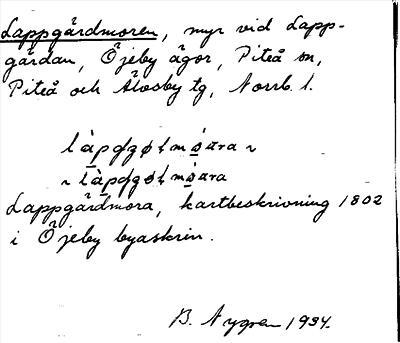 Lappgårdmoren, myr vid Lapp-
gårdan, Öjeby ägor, Piteå sn,
Piteå och Älvsby tg, Norrb. l.
Lappgårdmora, kartbeskrivning 1802
i Öjeby byaskrin.
B. Nygren 1934.